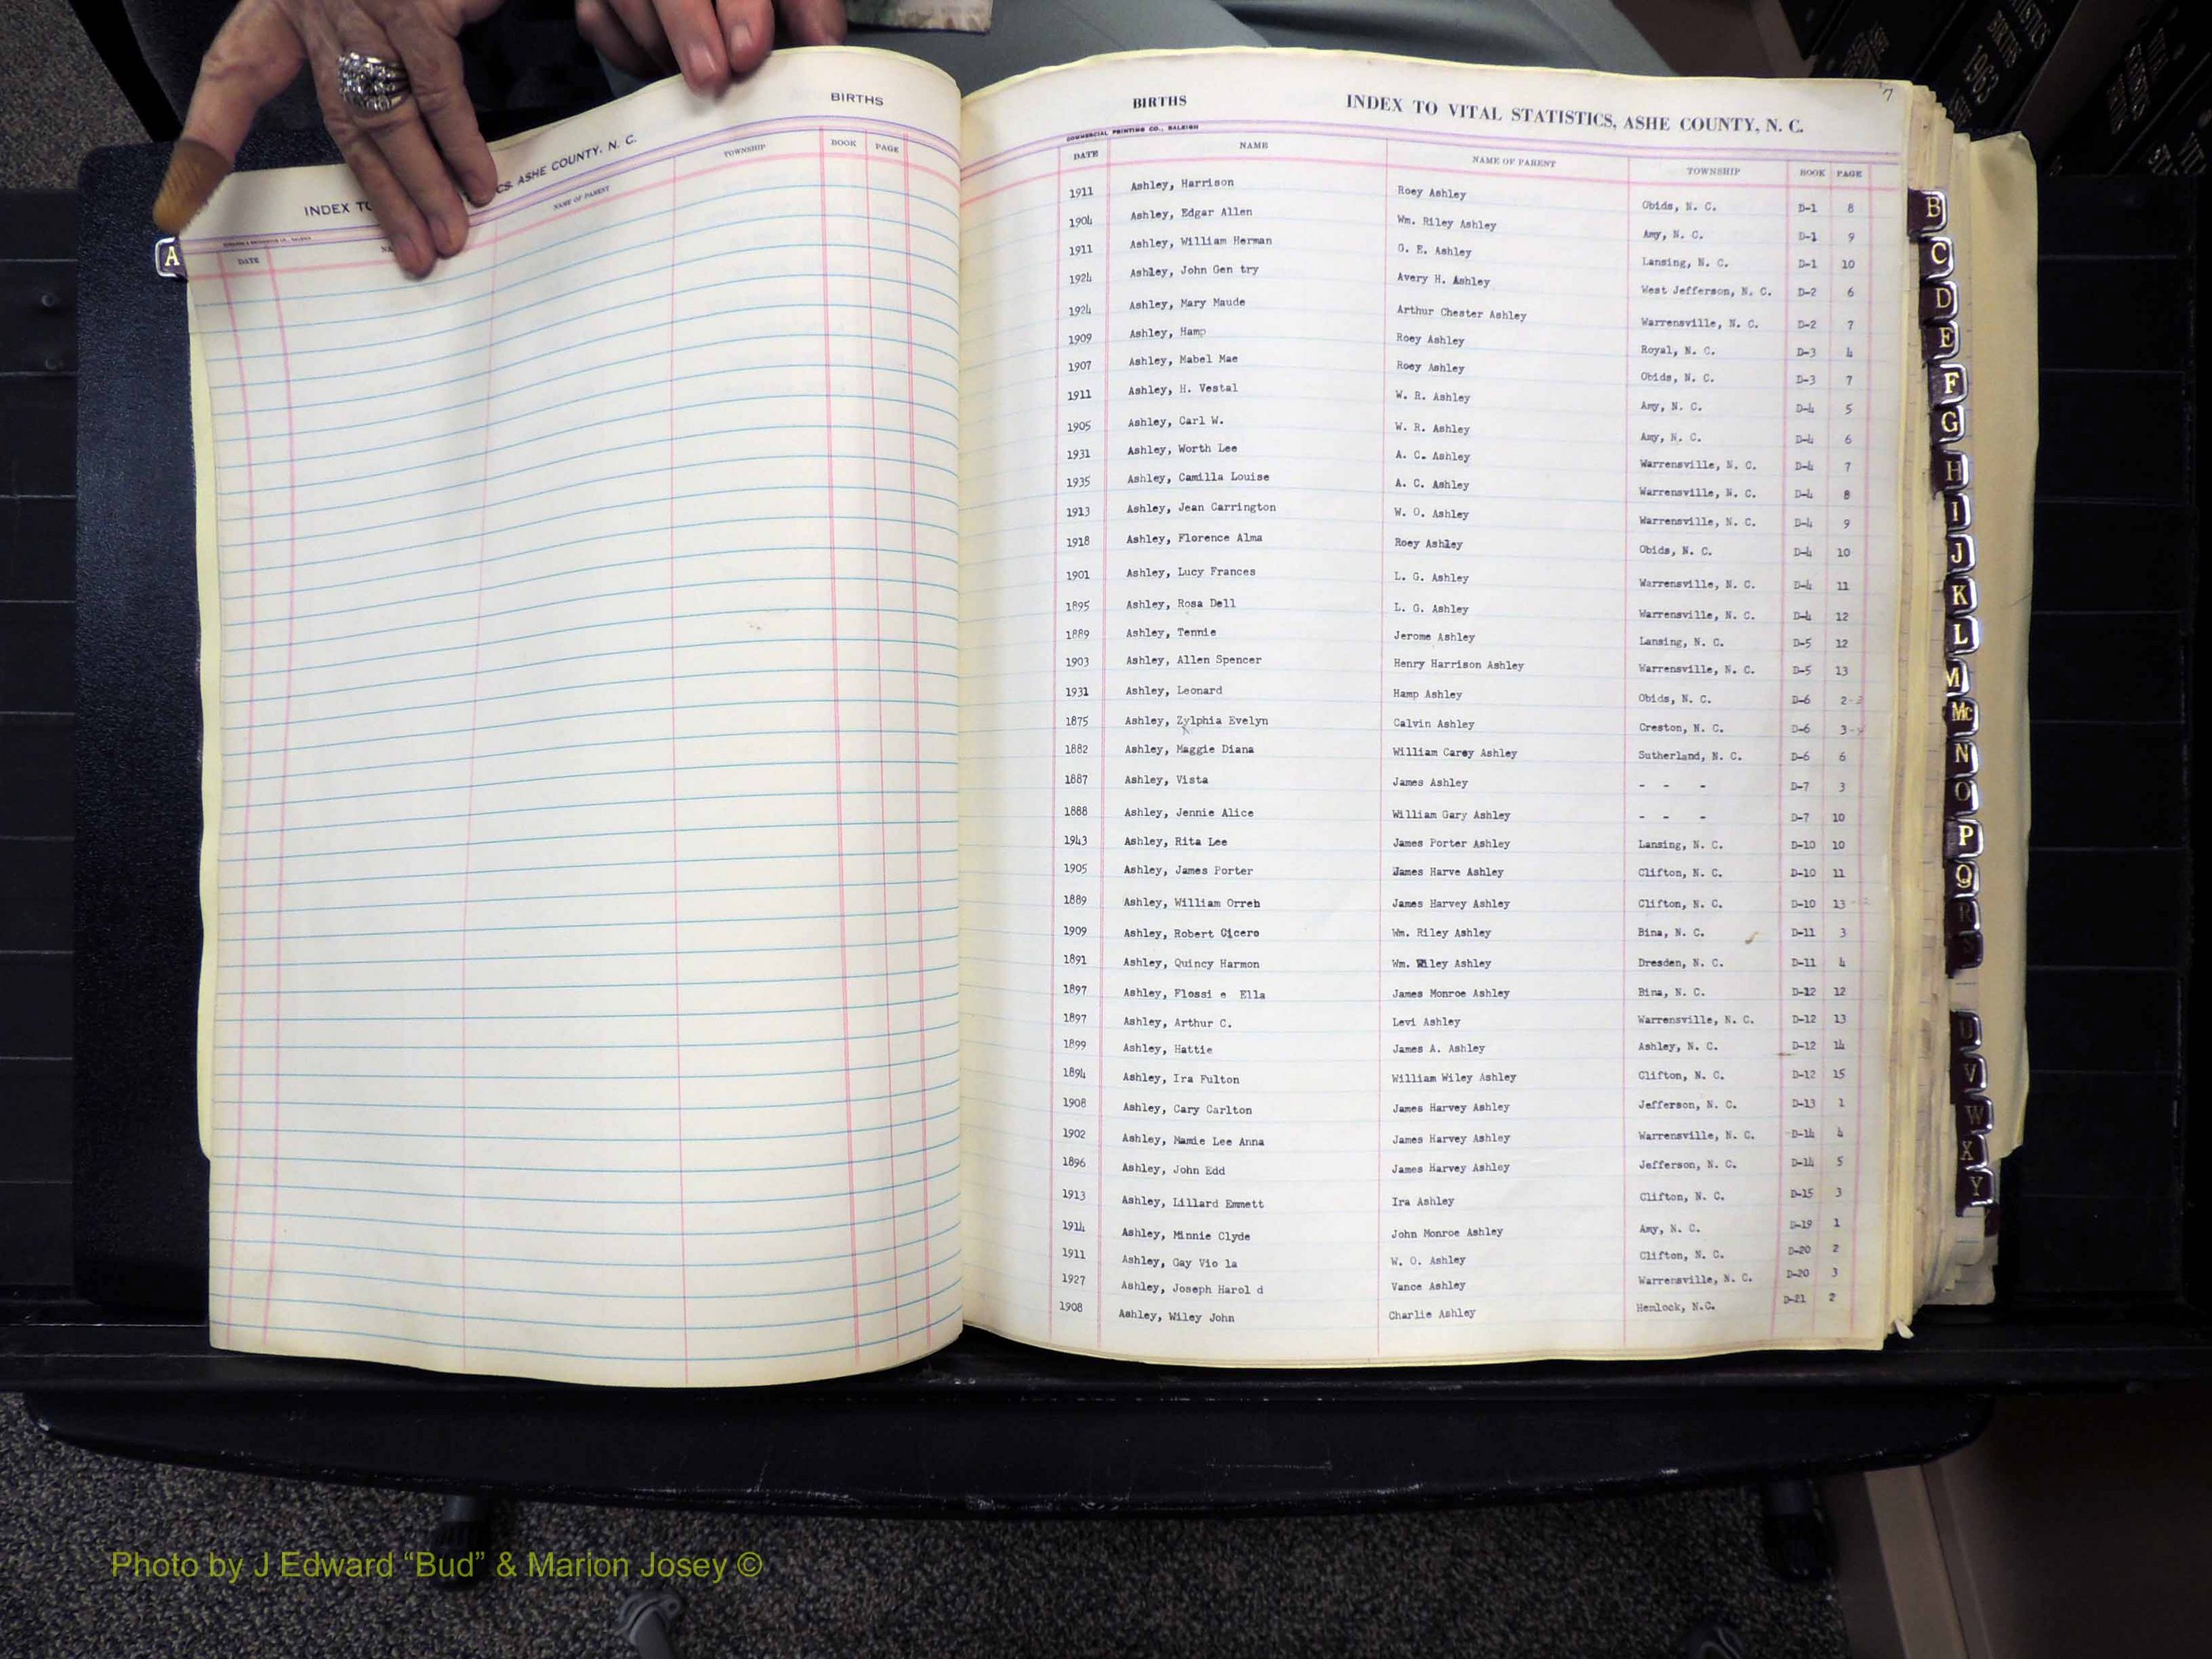 BIRTHS
INDEX TO CS. ASHE COUNTY, N. C.
DATE NAME OF PARENT TOWNSHIP BOOK PAGE
A
7
BIRTHS INDEX TO VITAL STATISTICS, ASHE COUNTY, N. C.
COMMERCIAL PRINTING CO., RALEIGH
DATE NAME NAME OF PARENT TOWNSHIP BOOK PAGE
1911 Ashley, Harrison Roey Ashley Obids, N. C. D-1 8
1904 Ashley, Edgar Allen Wm. Riley Ashley Amy, N. C. D-1 9
1911 Ashley, William Herman G. E. Ashley Lansing, N. C. D-1 10
1924 Ashley, John Gen try Avery H. Ashley West Jefferson, N. C. D-2 6
1924 Ashley, Mary Maude Arthur Chester Ashley Warrensville, N. C. D-2 7
1909 Ashley, Hamp Roey Ashley Royal, N. C. D-3 4
1907 Ashley, Mabel Mae Roey Ashley Obids, N. C. D-3 7
1911 Ashley, H. Vestal W. R. Ashley Amy, N. C. D-4 5
1905 Ashley, Carl W. W. R. Ashley Amy, N. C. D-4 6
1931 Ashley, Worth Lee A. C. Ashley Warrensville, N. C. D-4 7
1935 Ashley, Camilla Louise A. C. Ashley Warrensville, N. C. D-4 8
1913 Ashley, Jean Carrington W. O. Ashley Warrensville, N. C. D-4 9
1918 Ashley, Florence Alma Roey Ashley Obids, N. C. D-4 10
1901 Ashley, Lucy Frances L. G. Ashley Warrensville, N. C. D-4 11
1895 Ashley, Rosa Dell L. G. Ashley Warrensville, N. C. D-4 12
1889 Ashley, Tennie Jerome Ashley Lansing, N. C. D-5 12
1903 Ashley, Allen Spencer Henry Harrison Ashley Warrensville, N. C. D-5 13
1931 Ashley, Leonard Hamp Ashley Obids, N. C. D-6 2
1875 Ashley, Zylphia Evelyn Calvin Ashley Creston, N. C. D-6 3
1882 Ashley, Maggie Diana William Carey Ashley Sutherland, N. C. D-6 6
1887 Ashley, Vista James Ashley - - - D-7 3
1888 Ashley, Jennie Alice William Gary Ashley - - - D-7 10
1943 Ashley, Rita Lee James Porter Ashley Lansing, N. C. D-10 10
1905 Ashley, James Porter James Harve Ashley Clifton, N. C. D-10 11
1889 Ashley, William Orreh James Harvey Ashley Clifton, N. C. D-10 13
1909 Ashley, Robert Cicero Wm. Riley Ashley Bina, N. C. D-11 3
1891 Ashley, Quincy Harmon Wm. Wiley Ashley Dresden, N. C. D-11 4
1897 Ashley, Flossi e Ella James Monroe Ashley Bina, N. C. D-12 12
1897 Ashley, Arthur C. Levi Ashley Warrensville, N. C. D-12 13
1899 Ashley, Hattie James A. Ashley Ashley, N. C. D-12 14
1894 Ashley, Ira Fulton William Wiley Ashley Clifton, N. C. D-12 15
1908 Ashley, Cary Carlton James Harvey Ashley Jefferson, N. C. D-13 1
1902 Ashley, Mamie Lee Anna James Harvey Ashley Warrensville, N. C. D-14 4
1896 Ashley, John Edd James Harvey Ashley Jefferson, N. C. D-14 5
1913 Ashley, Lillard Emmett Ira Ashley Clifton, N. C. D-15 3
1914 Ashley, Minnie Clyde John Monroe Ashley Amy, N. C. D-19 1
1911 Ashley, Gay Vio la W. O. Ashley Clifton, N. C. D-20 2
1927 Ashley, Joseph Harol d Vance Ashley Warrensville, N. C. D-20 3
1908 Ashley, Wiley John Charlie Ashley Hemlock, N.C. D-21 2
B
C
D
E
F
G
H
I
J
K
L
M
Mc
N
O
P
Q
R
S
U
V
W
X
Y
BIRTHS
1963
Photo by J Edward “Bud” & Marion Josey ©